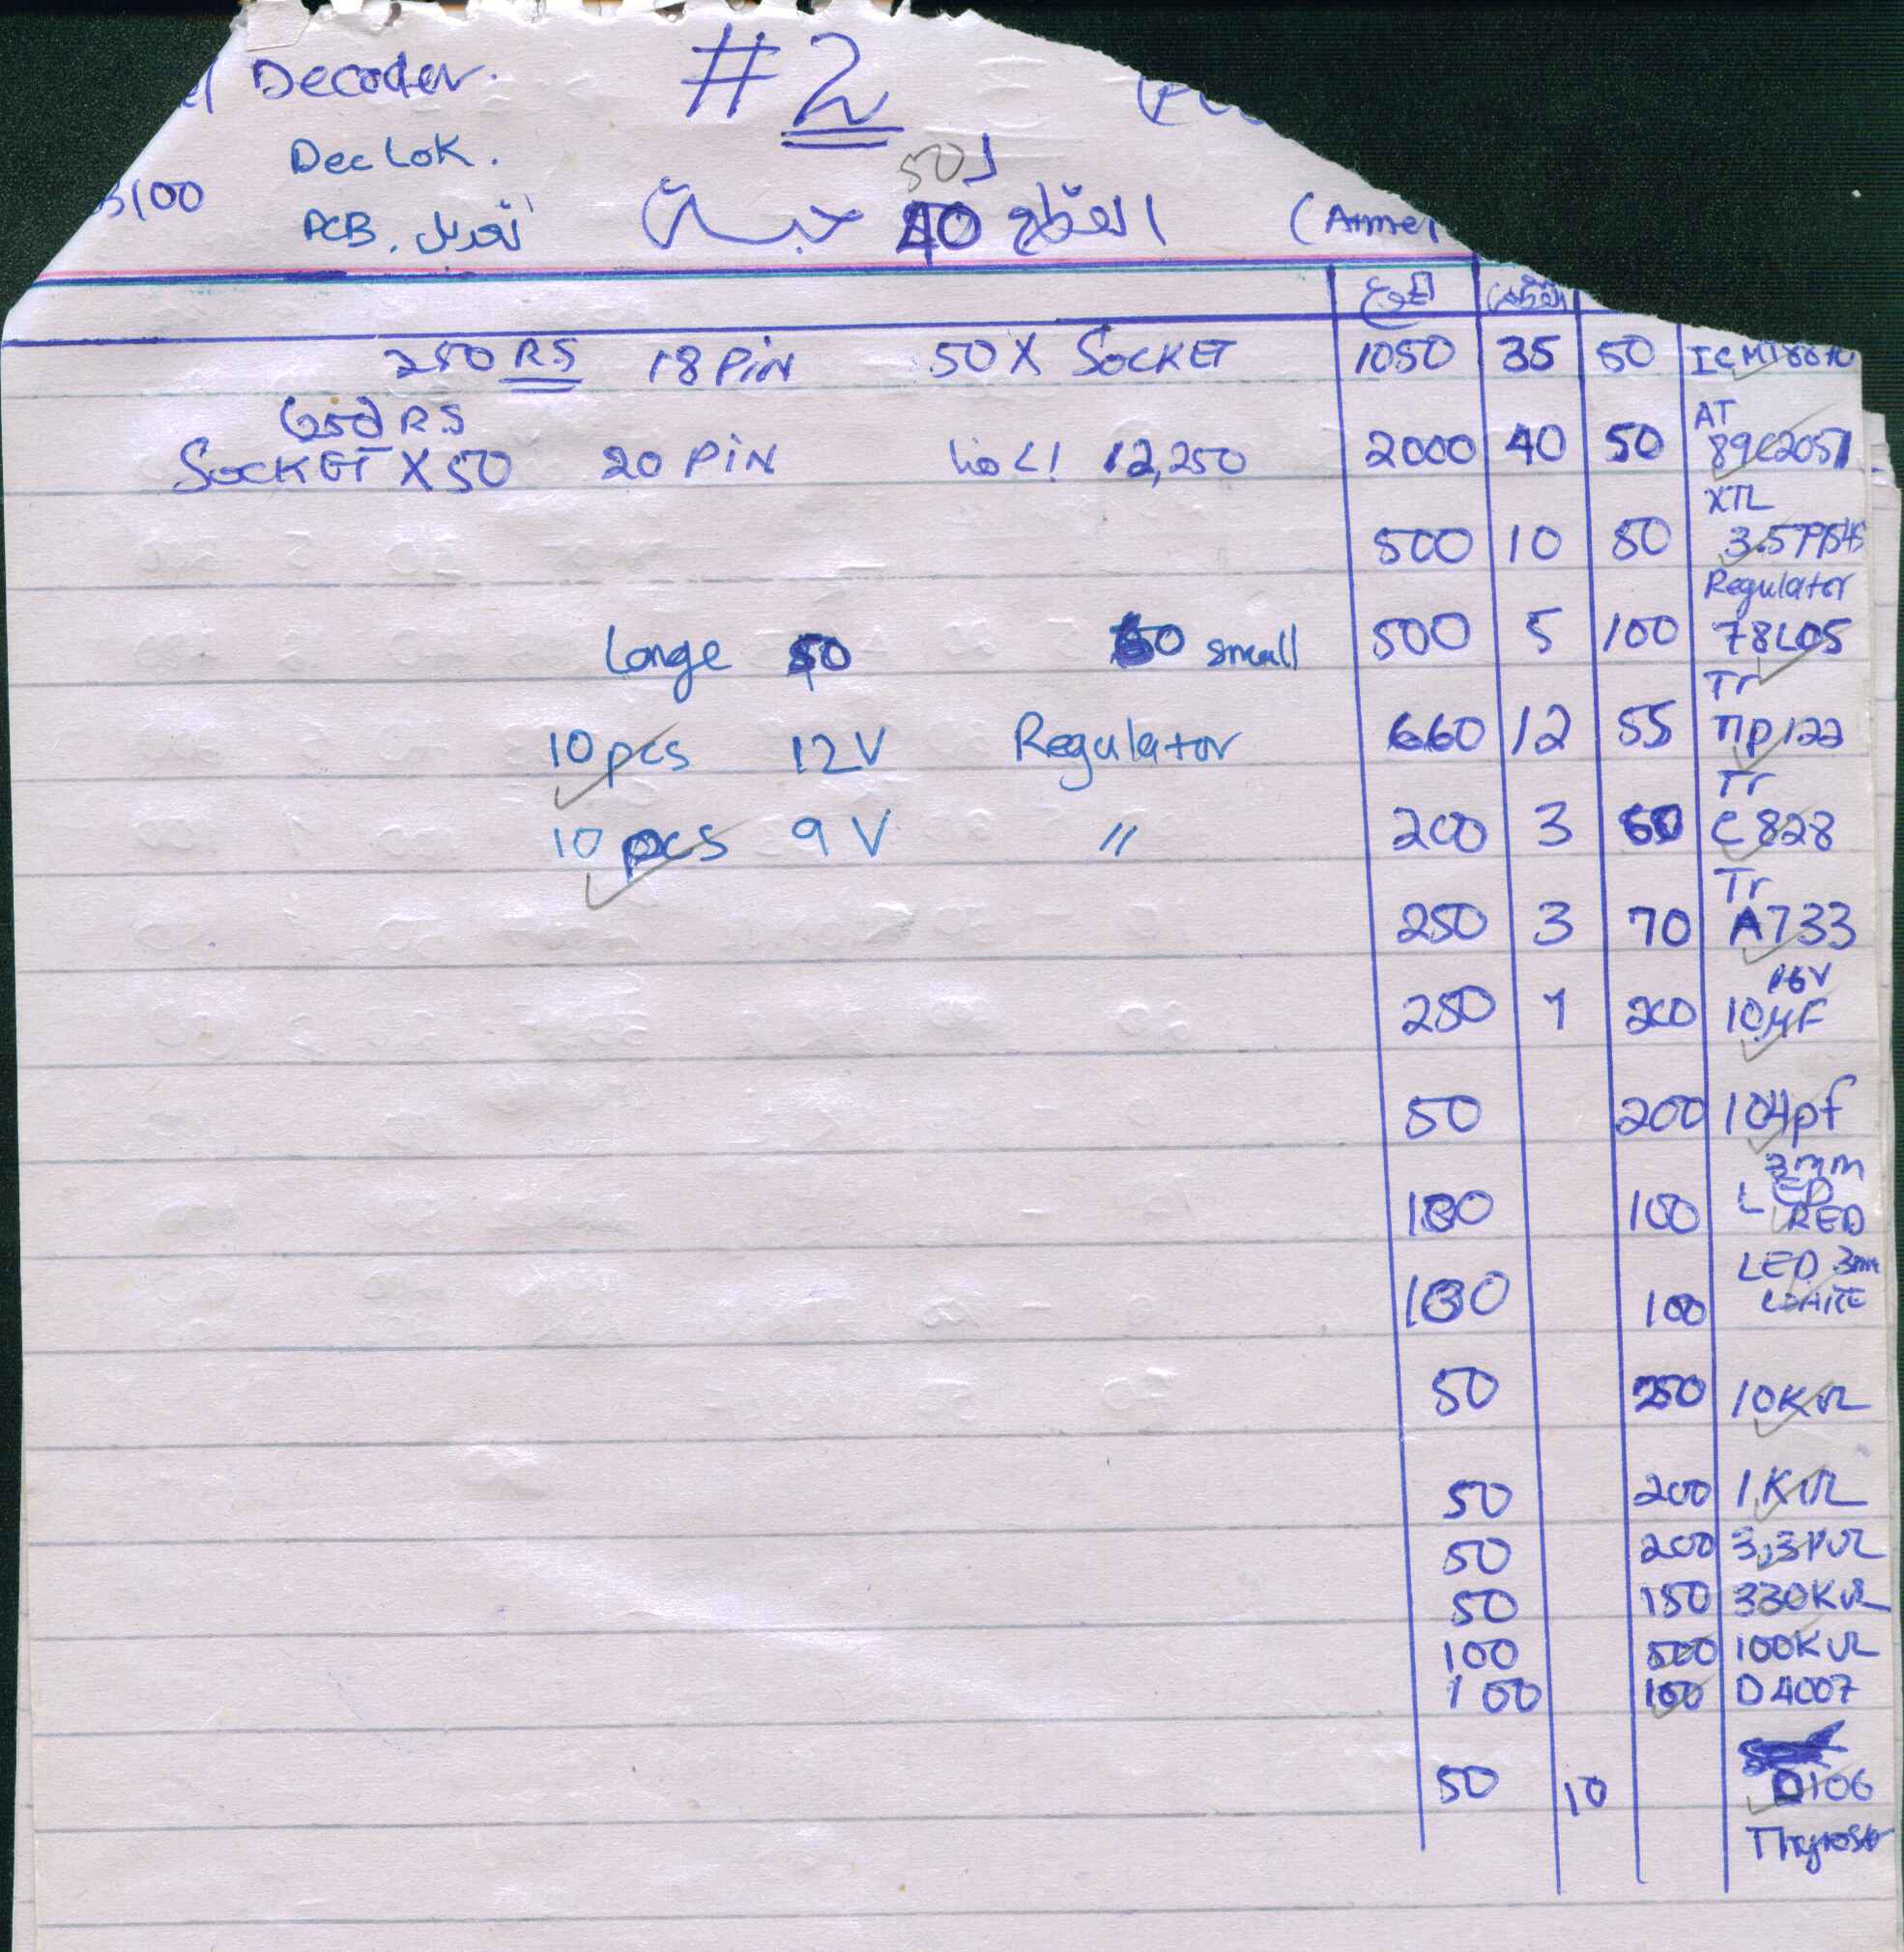 Decoder. #2
Dec Lok. 50 ل
5100
PCB. تعديل القطع 40 حبة (Atmel
250 RS 18 PIN 50 X SOCKET 1050 35 50 IC MT8870
650 RS
SOCKET X 50 20 PIN 12,250 2000 40 50 AT 89C2051
500 10 50 XTL 3.579545
Large 50 50 small 500 5 100 Regulator 78L05
10 pcs 12V Regulator 660 12 55 Tr Tip 122
10 pcs 9V " 200 3 60 Tr C828
250 3 70 Tr A733
250 1 200 10µF 16V
50 200 104pf
100 100 3mm LED RED
100 100 LED 3mm WHITE
50 250 10KΩ
50 200 1KΩ
50 200 3,3KΩ
50 150 330KΩ
100 500 100KΩ
100 100 D4007
50 10 D106